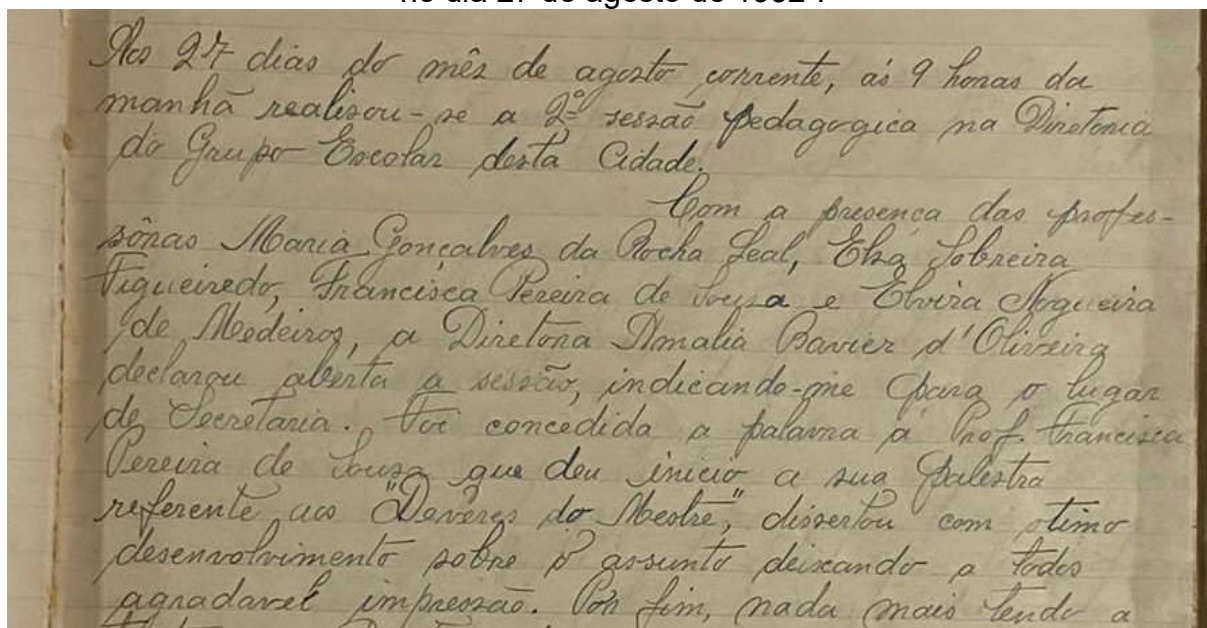 no dia 27 de agosto de 1932 .
Aos 27 dias do mês de agosto corrente, ás 9 horas da
manhã realisou-se a 2ª sessão pedagogica na Diretoria
do Grupo Escolar desta Cidade.
Com a presença das profes-
sôras Maria Gonçalves da Rocha Leal, Elza Sobreira
Figueiredo, Francisca Pereira de Sousa e Elvira Nogueira
de Medeiros, a Diretora Amalia Xavier d'Oliveira
declarou aberta a sessão, indicando-me para o lugar
de Secretaria. Foi concedida a palavra á Prof. Francisca
Pereira de Sousa que deu inicio a sua palestra
referente aos "Devêres do Mestre", dissertou com otimo
desenvolvimento sobre o assunto deixando a todos
agradavel impressão. Por fim, nada mais tendo a